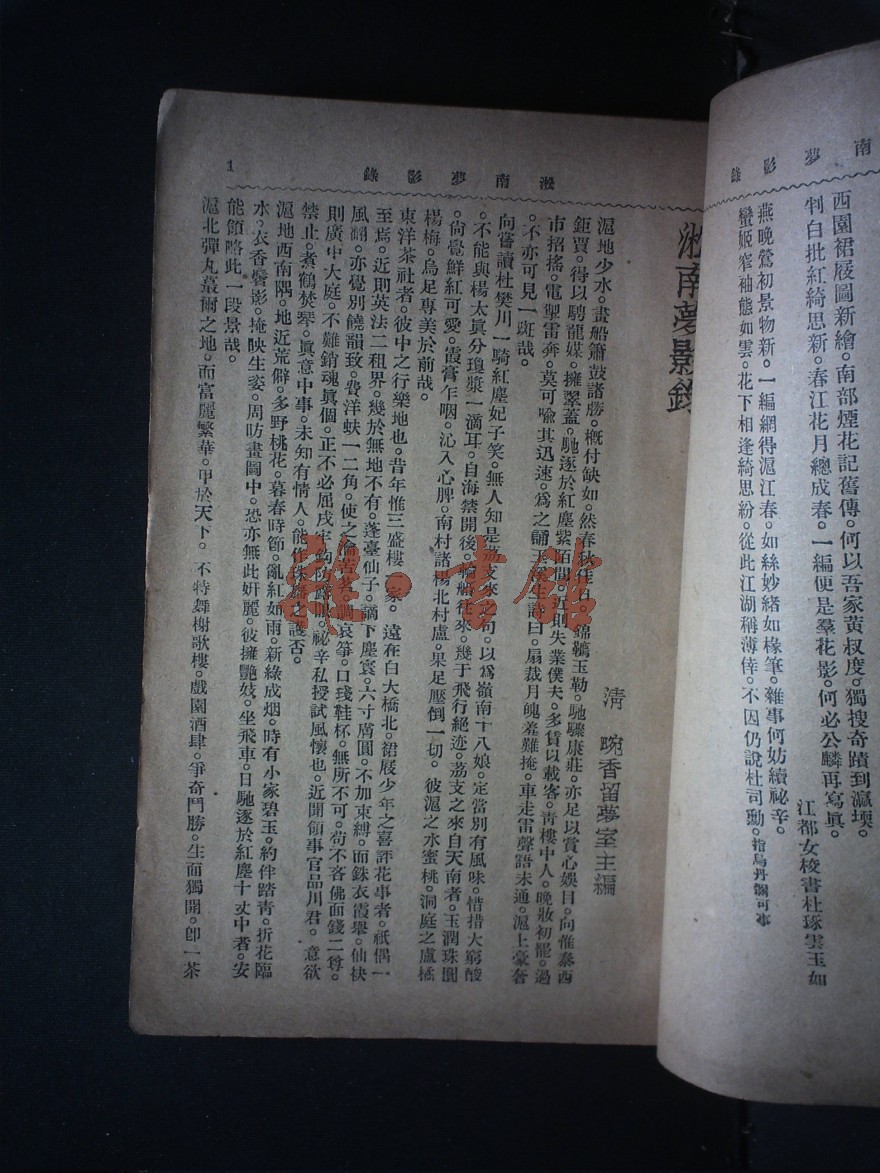 南夢影錄
西園裙屐圖新繪。南部煙花記舊傳。何以吾家黃叔度。獨搜奇蹟到瀛壖。
判白批紅綺思新。春江花月總成春。一編便是羣花影。何必公麟再寫眞。
江都女梭書杜琢雲玉如
燕晚鶯初景物新。一編網得滬江春。如絲妙緒如椽筆。雜事何妨續祕辛。
蠻姬窄袖態如雲。花下相逢綺思紛。從此江湖稱薄倖。不因仍說杜司勳。
淞南夢影錄
1
淞南夢影錄
清 畹香留夢室主編
滬地少水。畫船簫鼓諸勝。槪付缺如。然春秋佳日。錦韉玉勒。馳驟康莊。亦足以賞心娛目。向惟泰西
鉅賈。得以騁龍媒。擁翠蓋。馳逐於紅塵紫陌間。近則失業僕夫。多賃以載客。靑樓中人。晚妝初罷。過
市招搖。電掣雷奔。莫可喩其迅速。爲之誦玉溪生詩曰。扇裁月魄羞難掩。車走雷聲語未通。滬上豪奢
。不亦可見一斑哉。
向嘗讀杜樊川一騎紅塵妃子笑。無人知是荔支來之句。以爲嶺南十八娘。定當別有風味。惜措大窮酸
。不能與楊太眞分瓊漿一滴耳。自海禁開後。輪船往來。幾于飛行絕迹。荔支之來自天南者。玉潤珠圓
。尙覺鮮紅可愛。霞膏乍咽。沁入心脾。南村諸楊北村盧。果足壓倒一切。彼滬之水蜜桃。洞庭之盧橘
楊梅。烏足專美於前哉。
東洋茶社者。彼中之行樂地也。昔年惟三盛樓一家。遠在白大橋北。裙屐少年之喜評花事者。祇偶一
至焉。近則英法二租界。幾於無地不有。蓬臺仙子。謫下塵寰。六寸膚圓。不加束縛。而銖衣霞舉。仙袂
風翻。亦覺別饒韻致。費洋蚨一二角。使之淪苦茗。調哀箏。口琖鞋杯。無所不可。苟不吝佛面錢二尊。
則廣中大庭。不難銷魂眞個。正不必屈戌牢。祕辛私授試風懷也。近聞領事官品川君。意欲
禁止。煮鶴焚琴。眞意中事。未知有情人。能作珠之護否。
滬地西南隅。地近荒僻。多野桃花。暮春時節。亂紅如雨。新綠成烟。時有小家碧玉。約伴踏靑。折花臨
水。衣香鬢影。掩映生姿。周昉畫圖中。恐亦無此妍麗。彼擁豔妓。坐飛車。日馳逐於紅塵十丈中者。安
能領略此一段景哉。
滬北彈丸蕞爾之地。而富麗繁華。甲於天下。不特舞榭歌樓。戲園酒肆。爭奇鬥勝。生面獨開。卽一茶